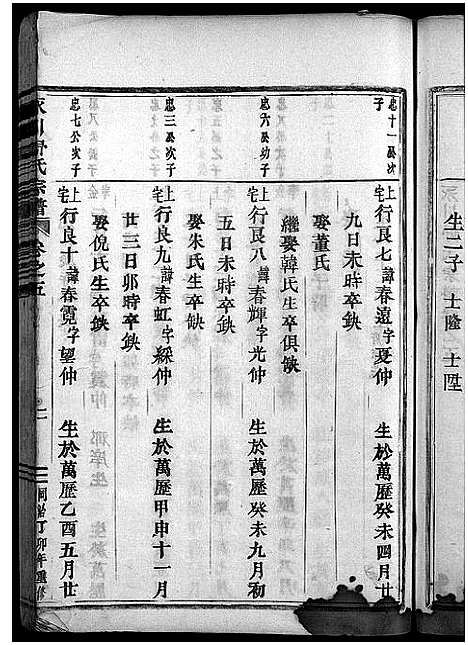 生二子 士隆 士陞
忠十一公次子
上宅行良七諱春遠字夏仲 生於萬歷癸未四月廿
九日未時卒缺
娶董氏
繼娶韓氏生卒俱缺
忠六公幼子
上宅行良八諱春輝字光仲 生於萬歷癸未九月初
五日未時卒缺
娶朱氏生卒缺
忠三公次子
上宅行良九諱春虹字綵仲 生於萬歷甲申十一月
廿三日卯時卒缺
娶倪氏生卒缺
忠七公次子
上宅行良十諱春霓字望仲 生於萬歷乙酉五月廿
氏宗譜 卷之五
同治丁卯年重修